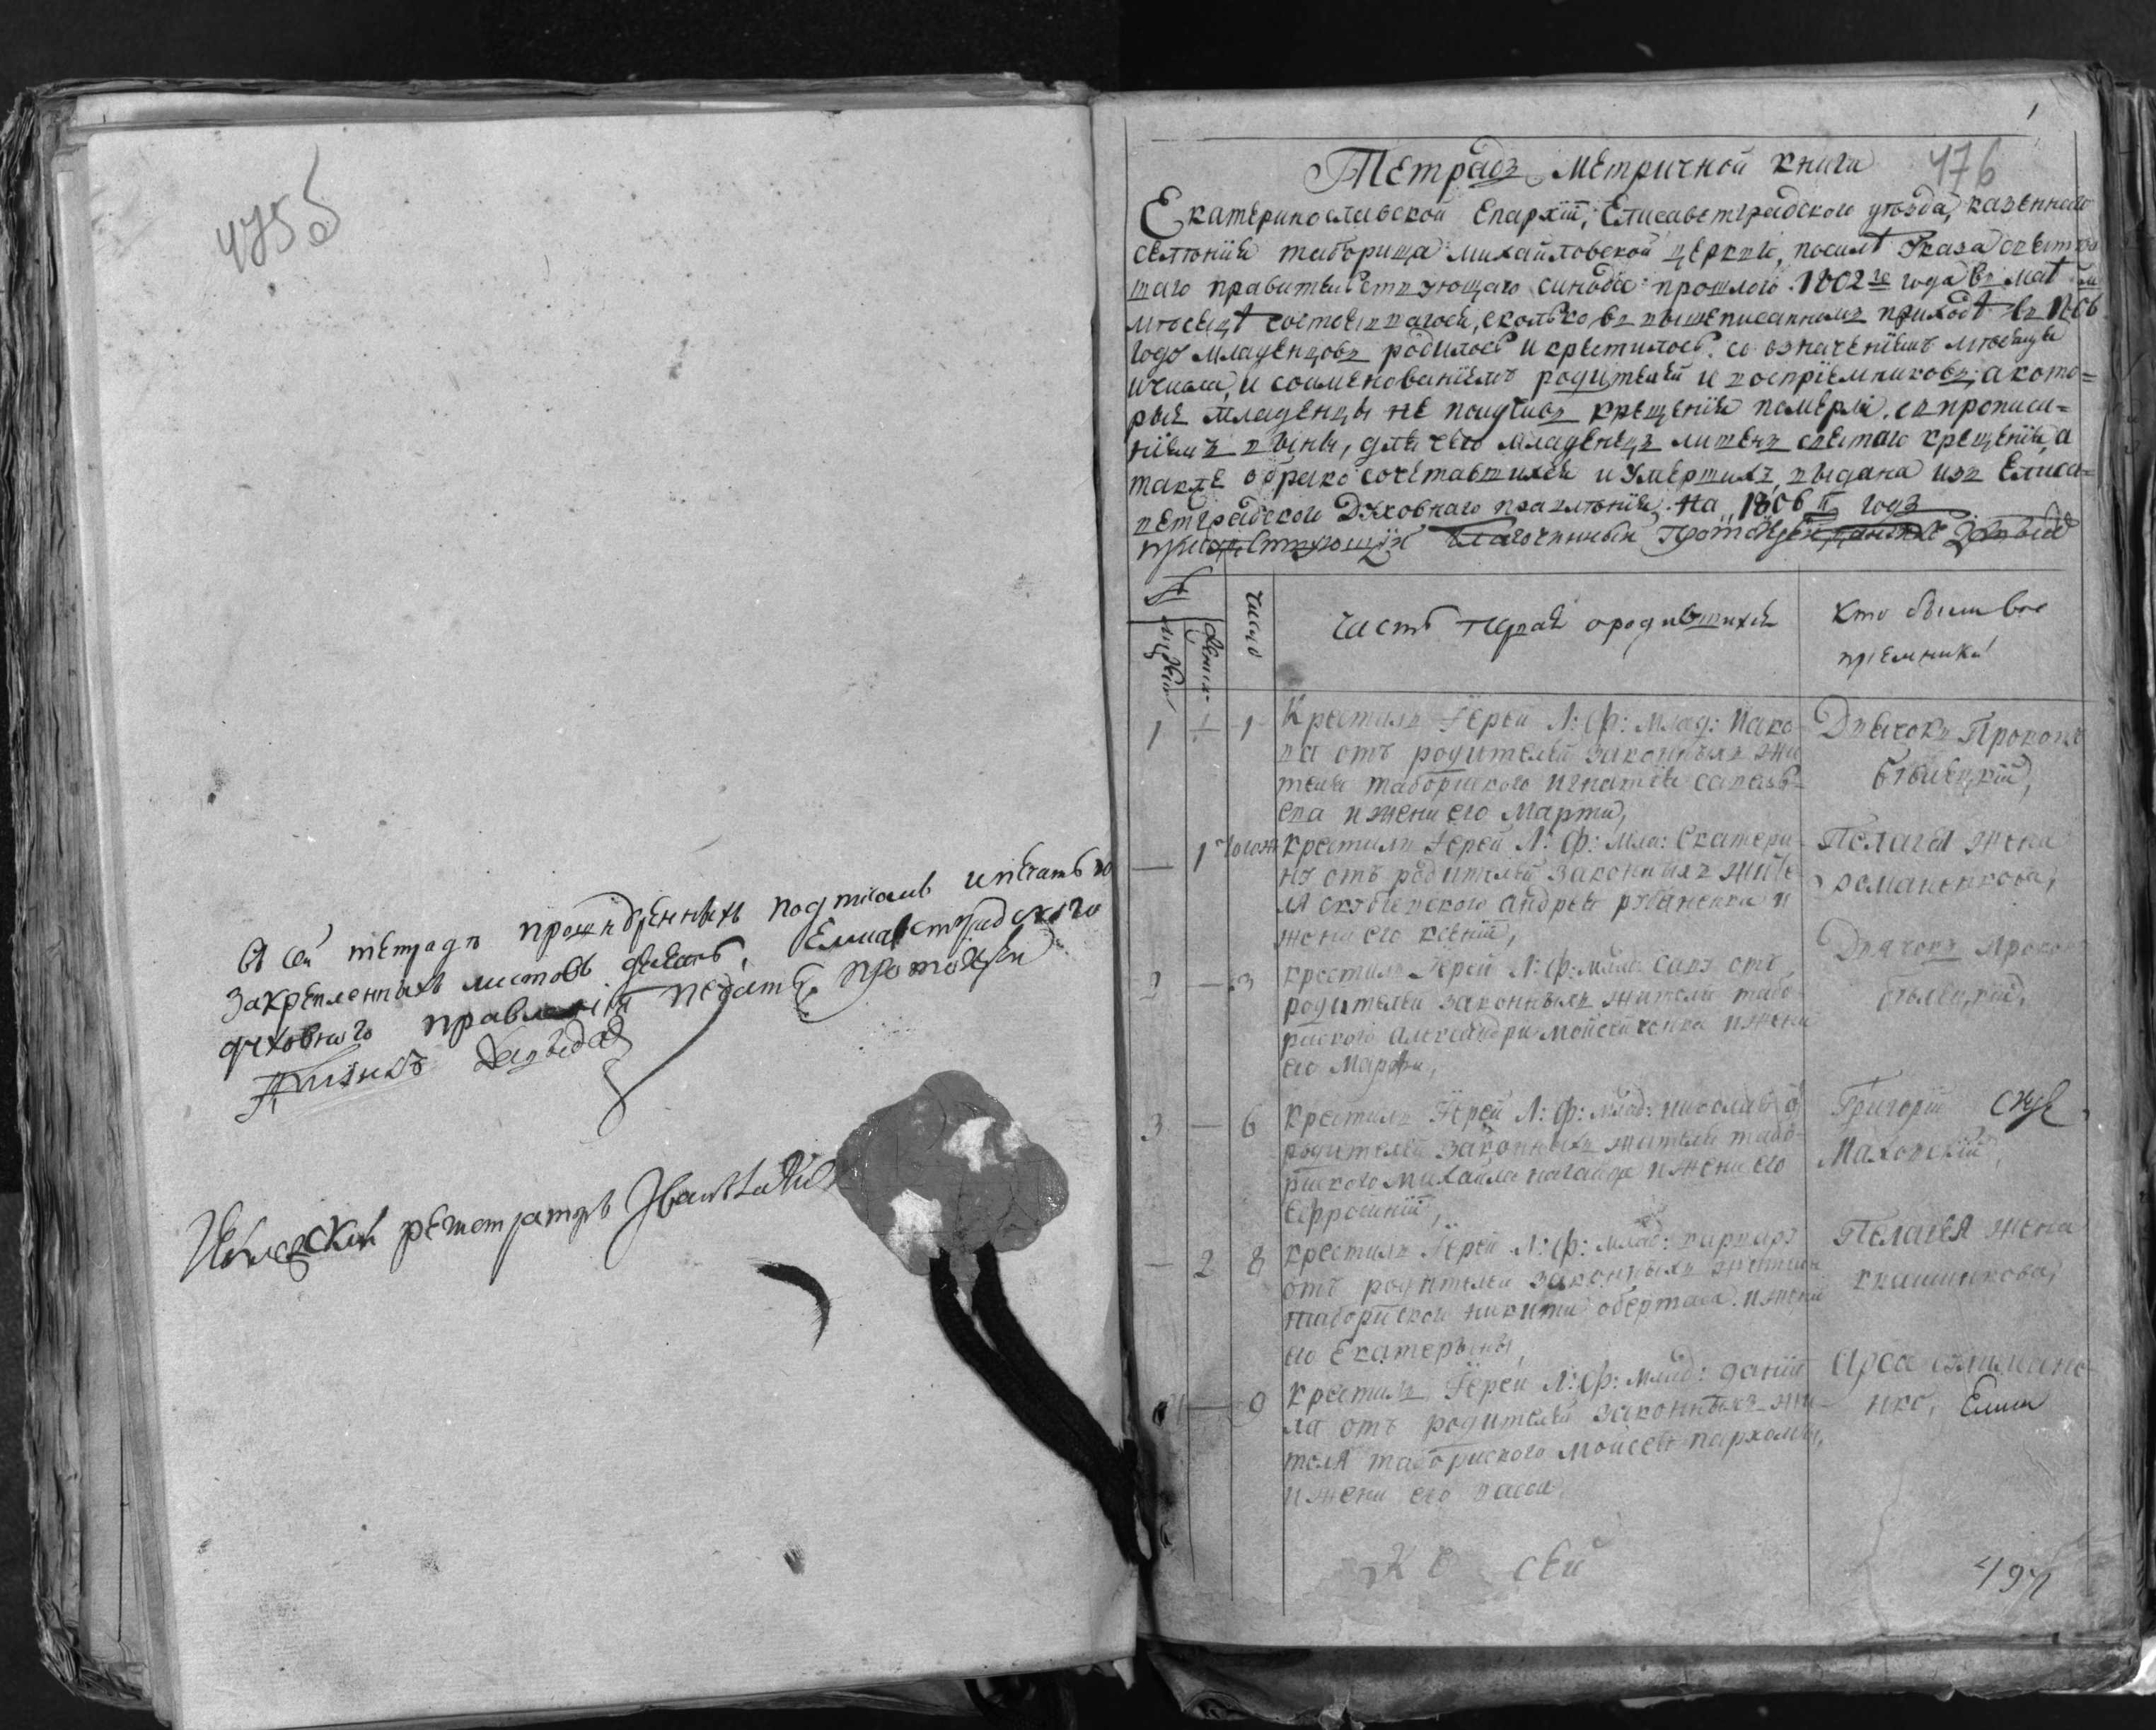 475б
В сей тетрадѣ прошнѣренныхъ подписомъ ипечатью
закрепленныхъ листовъ девять, Елисаветградского
духовного правленія печать. Протоіерей
Давыдов
регистраторъ Иванъ
1
476
Тетрадь метричной книги
Екатеринославской Епархіи, Елисаветградского уѣзда, казенного
селенія таборища Михайловской церкви, посилѣ Указа святѣй
шаго правительствующаго синода: прошлого 1802го года въ маѣ
мѣсяцѣ состоявшагося, сколько въ вышеписанномъ приходѣ въ 1806
году младенцовъ родилось икрестилось, со означеніемъ мѣсяца
ичисла, и соименованіемъ родителей и воспріемниковъ; а кото=
рые младенцы не получивъ крещенія померли, съ прописа=
ніемъ вины, для чего младенецъ лишенъ святаго крещенія, а
также обракосочетавшихся и умершихъ, выдана изъ Елиса=
ветградского Духовнаго правленія. На 1806й годъ
присутствующій благочинный Протоіерей Давыдов
№
мужеск
женск
число
Часть первая ородившихся
Кто были вос
пріемники
1 — 1 Крестилъ Іерей Л: Ф: млад: Иако
ва отъ родителей законныхъ жи
теля табориского игнатія
ева и жени его Марти,
Дьячокъ Прокопъ
бѣлецкій,
— 1 тогож крестилъ Іерей Л: Ф: мла: Екатери
ну отъ родителей законныхъ жите
ля андрея и
жени его ксеніи,
Пелагея жена
романенкова,
2 — 3 крестилъ Іерей Л: Ф: млад: саву отъ
родителей законныхъ жителя табо
риского александри мойсеенка ижени
его Марфи,
Дьячокъ Прокоп
бѣлецкій,
3 — 6 крестилъ Іерей Л: Ф: млад: николая о
родителей законныхъ жителя табо
риского михайла нагайца ижени его
Ефросиніи,
Григорій
Маховскій,
— 2 8 крестилъ Іерей Л: Ф: млад: варвару
отъ родителей законныхъ жителя
таборискои никити обертаса ижени
его Екатерыны,
Пелагея жена
квашникова,
— 9 крестилъ Іерей Л: Ф: млад: даніи
ла отъ родителей законныхъ жи
теля таборыского мойсея пархоми,
ижени его васси,
нко,
сей
494